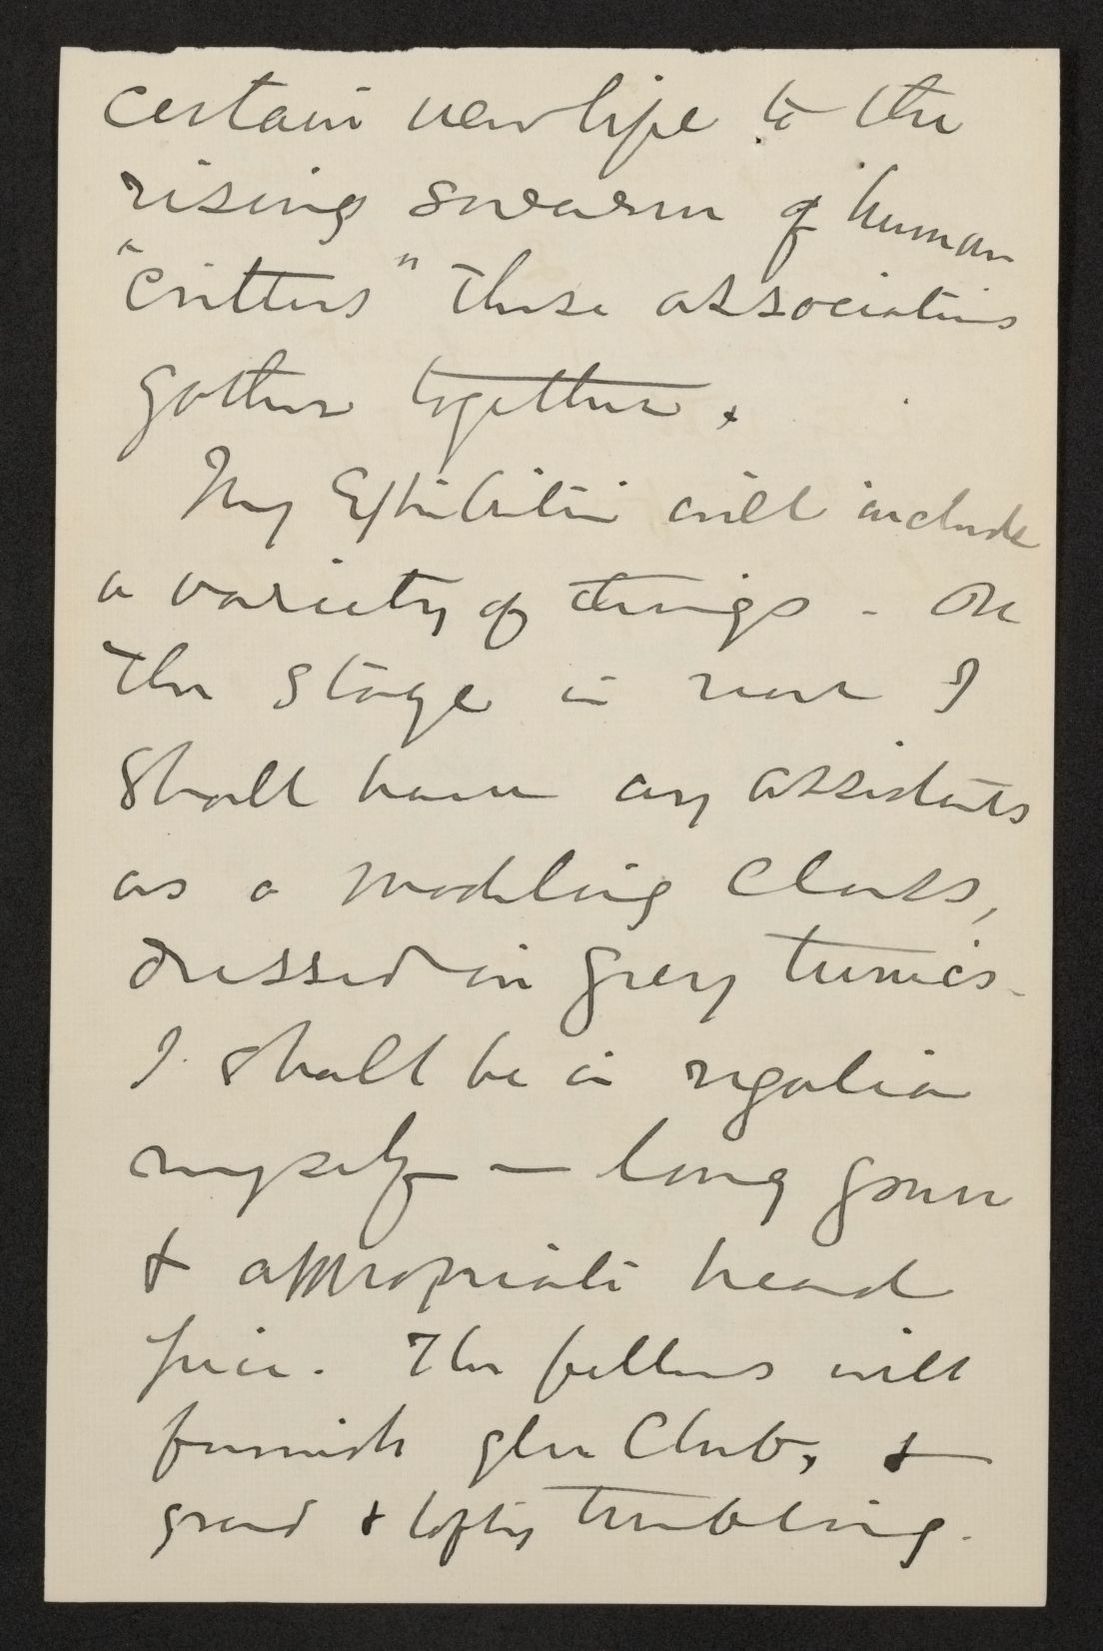 certain new life to the
rising swarm of human
"critters" these associations
gather together.
My Exhibition will include
a variety of things - On
the stage in rear I
shall have my assistants
as a modeling class,
dressed in grey tunics.
I shall be in regalia
myself — long gown
& appropriate head
piece. The fellows will
furnish glee Club, &
grand & lofty tumbling.